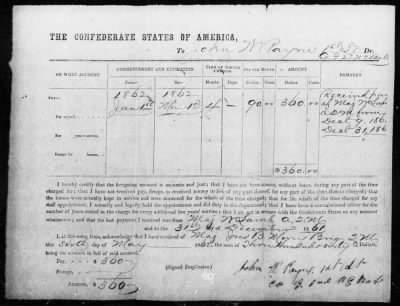 THE CONFEDERATE STATES OF AMERICA,
To John W Payne 1st Lt. Dr.
ON WHAT ACCOUNT. COMMENCEMENT AND EXPIRATION. TERM OF SERVICE CHARGED. PAY PER MONTH. AMOUNT. REMARKS
From— To— Months Days Dollars Cents Dollars Cents
1862 1862
Pay— Jan 1st May 1st 4 — 90 00 360 00
Received pay
of Maj W Lamb
A.Q.M. from
Dect 9, 186
Dect 31, 186
For myself,
For years' service,
Forage for horses,
$360.00
I hereby certify that the foregoing account is accurate and just; that I have not been absent, without leave, during any part of the time
charged for; that I have not received pay, forage, or received money in lieu of any part thereof, for any part of the time therein charged; that
the horses were actually kept in service and were mustered for the whole of the time charged; that for the whole of the time charged for my
staff appointment, I actually and legally held the appointment and did duty in the department; that I have been a commissioned officer for the
number of years stated in the charge for every additional five years' service; that I am not in arrears with the Confederate States on any account
whatsoever; and that the last payment I received was from Maj W Lamb A.Q.M.
and to the 31st day of December 1861
I, at the same time, acknowledge that I have received of Maj
this Sixth day of May 1862 the sum of Three Hundred & Sixty Dollars
being the amount in full of said account.
Pay, - $360
Forage,
Amount, $360
(Signed Duplicates)
John W Payne, 1st Lt
Co